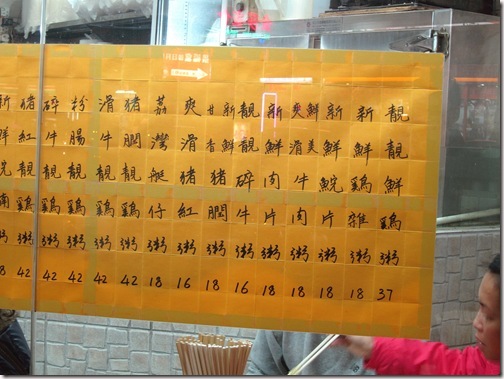 靚靚鮮鷄粥 37
新鮮鷄雜粥 18
新鮮鯇片粥 18
爽滑鮮美牛肉粥 18
新鮮肉片粥 18
靚靚碎牛粥 16
甘香新鮮猪膶粥 18
爽滑猪紅粥 16
荔灣艇仔粥 18
猪膶靚鷄粥 42
滑牛靚鷄粥 42
粉腸靚鷄粥 42
碎牛靚鷄粥 42
猪紅靚鷄粥 42
新鮮鯇腩粥 8